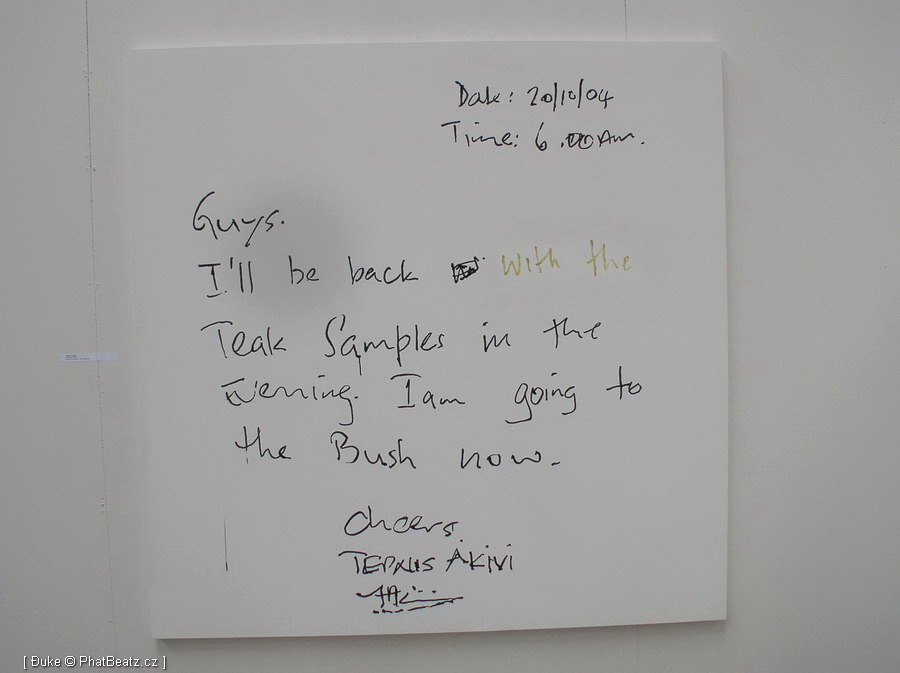 Date: 20/10/04
Time: 6.00Am.
Guys.
I'll be back with the
Teak Samples in the
Evening. I am going to
the Bush now.
Cheers.
AKIVI
[ Duke © PhatBeatz.cz ]